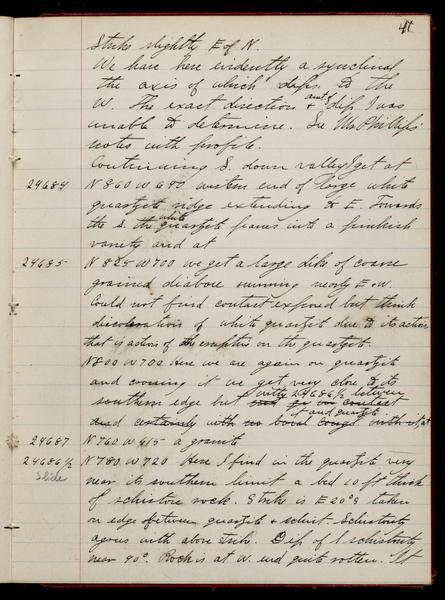 41
Strike slightly E of N.
We have here evidently a synclinal
the axis of which dips to the
W. The exact direction + amt of dip I was
unable to determine. See Mr Phillips
notes with profile.
Continuing S. down valley I get at
24684 N 860 W 690 western end of large white
quartzite ridge extending to E. Towards
the S. the white quartzite passes into a pinkish
variety and at
24685 N 825 W 700 we get a large dike of coarse
grained diabase running nearly E + W.
Could not find contact exposed but think
discoloration of white quartzite due to its action
that is action of the eruptive on the quartzite.
N 800 W 700 Here we are again on quartzite
and crossing it we get very close to its
southern edge but contact
with 24686½ between it and granite
certainly with no with it at
24687 N 760 W 615 a granite
24686½ N 780 W 720 Here I find in the quartzite very
Slide near its southern limit a bed 10 ft thick
of schistose rock. Strike is E 20° S taken
on edge of between quartzite + schist. Schistosity
agrees with above strike. Dip of schistosity
near 90°. Rock is at W. end quite rotten. At